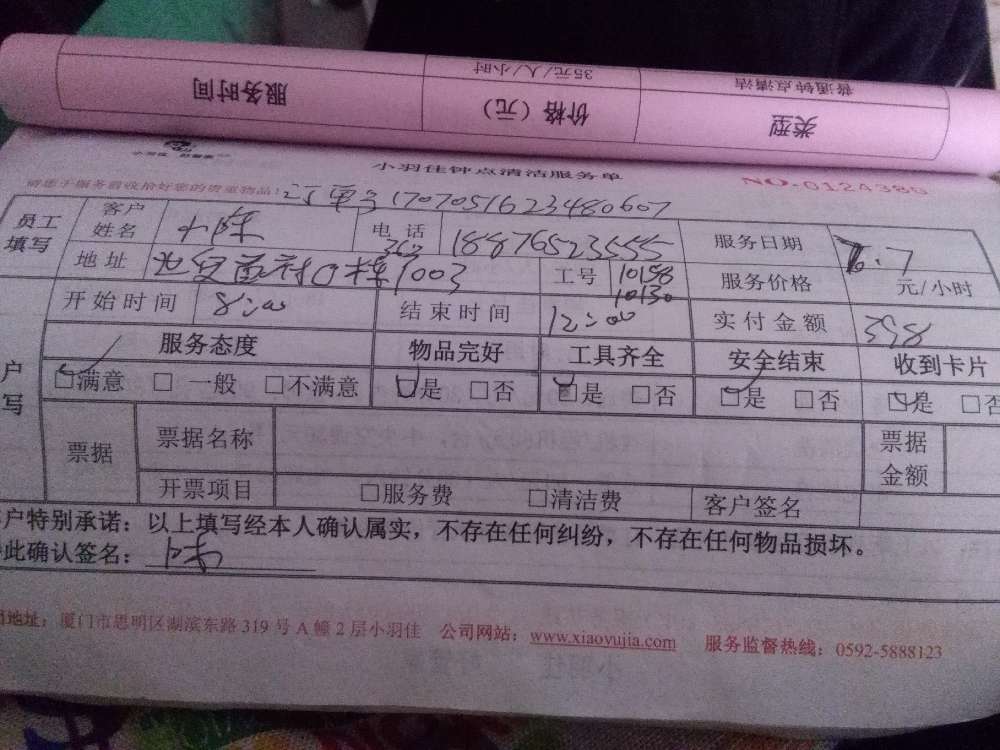 服务时间 价格（元） 类型
35元/人/小时 普通钟点清洁
小羽佳钟点清洁服务单 NO.0124386
请您于服务前收拾好您的贵重物品！订单号1707051623480607
员工填写 客户姓名 小陈 电话 18876523555 服务日期 7.7
地址 363 1003 工号 10158 10130 服务价格 元/小时
开始时间 8:00 结束时间 12:00 实付金额 398
服务态度 物品完好 工具齐全 安全结束 收到卡片
户写 □满意 □一般 □不满意 □是 □否 □是 □否 □是 □否 □是 □否
票据 票据名称 票据金额
开票项目 □服务费 □清洁费 客户签名
户特别承诺：以上填写经本人确认属实，不存在任何纠纷，不存在任何物品损坏。
此确认签名：陈
地址：厦门市思明区湖滨东路319号A幢2层小羽佳 公司网站：www.xiaoyujia.com 服务监督热线：0592-5888123